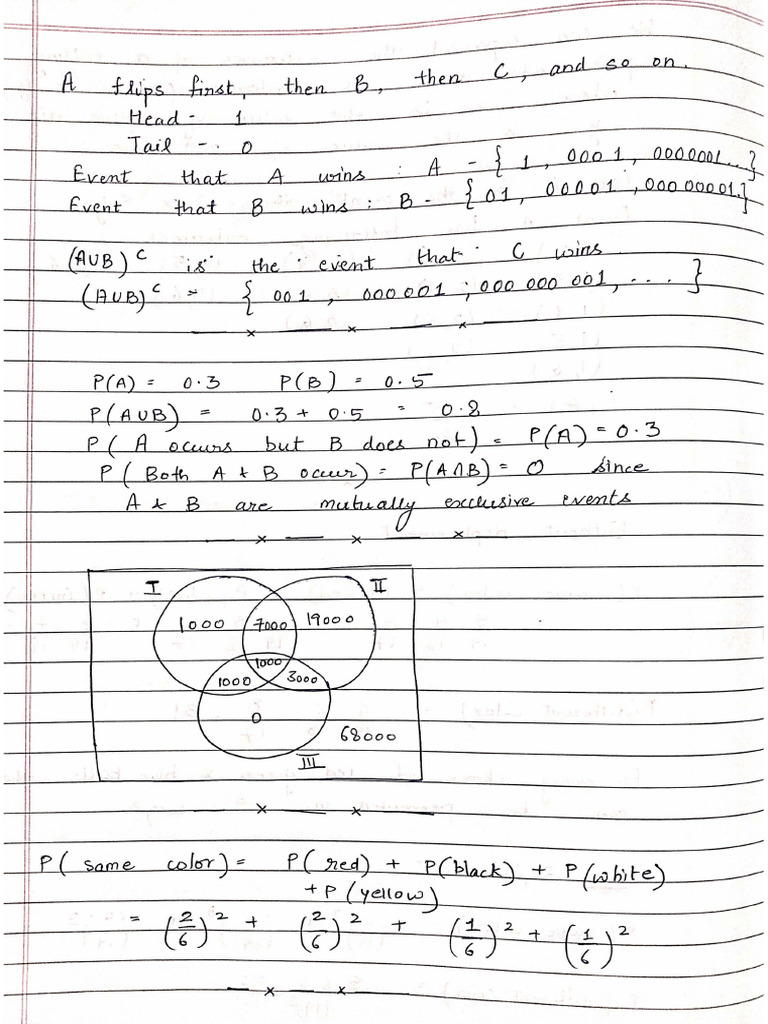 A flips first, then B, then C, and so on.
Head - 1
Tail - 0
Event that A wins : A - { 1, 0001, 0000001...}
Event that B wins : B - { 01, 00001, 00000001.}
(A∪B)^C is the event that C wins
(A∪B)^C = { 001, 000001, 000 000 001, .... }
P(A) = 0.3 P(B) = 0.5
P(A∪B) = 0.3 + 0.5 = 0.8
P( A occurs but B does not) = P(A) = 0.3
P( Both A & B occur) = P(A∩B) = 0 since
A & B are mutually exclusive events
I II
1000 7000 19000
1000
1000 3000
0
68000
III
P( same color) = P(red) + P(black) + P(white)
+ P(yellow)
= (2/6)^2 + (2/6)^2 + (1/6)^2 + (1/6)^2